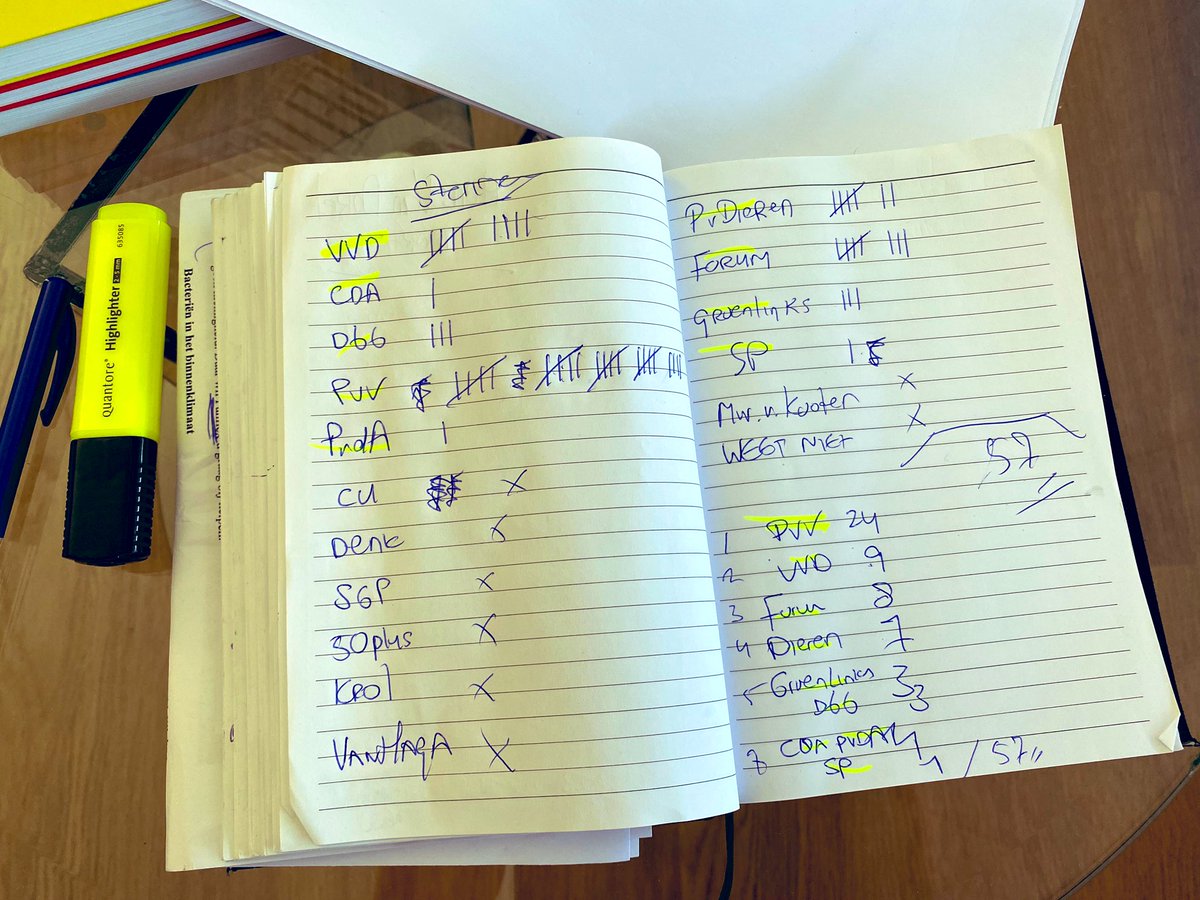 635085
quantore® Highlighter 2-5 mm
Bacteriën in het binnenklimaat
Stemmen
VVD
CDA
D66
PVV
PvdA
CU X
Denk X
SGP X
50plus X
Krol X
VanHaga X
PvDieren
Forum
Groenlinks
SP
Mw. v. Kooten X
WEET NIET X
57
1 PVV 24
2 VVD 9
3 Forum 8
4 Dieren 7
5 Groenlinks 3
D66 3
CDA PVDA 1
SP 1 / 57